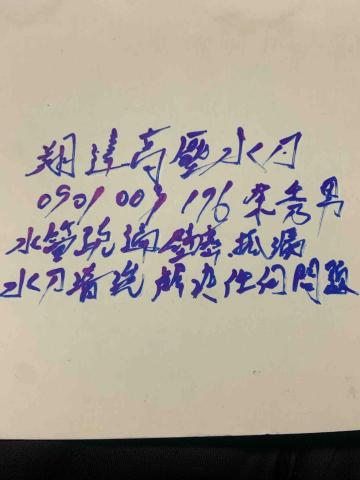 翔達高壓水刀
0901 009 196 宋秀男
水管疏通 壁癌.抓漏
水刀清洗 解決任何問題